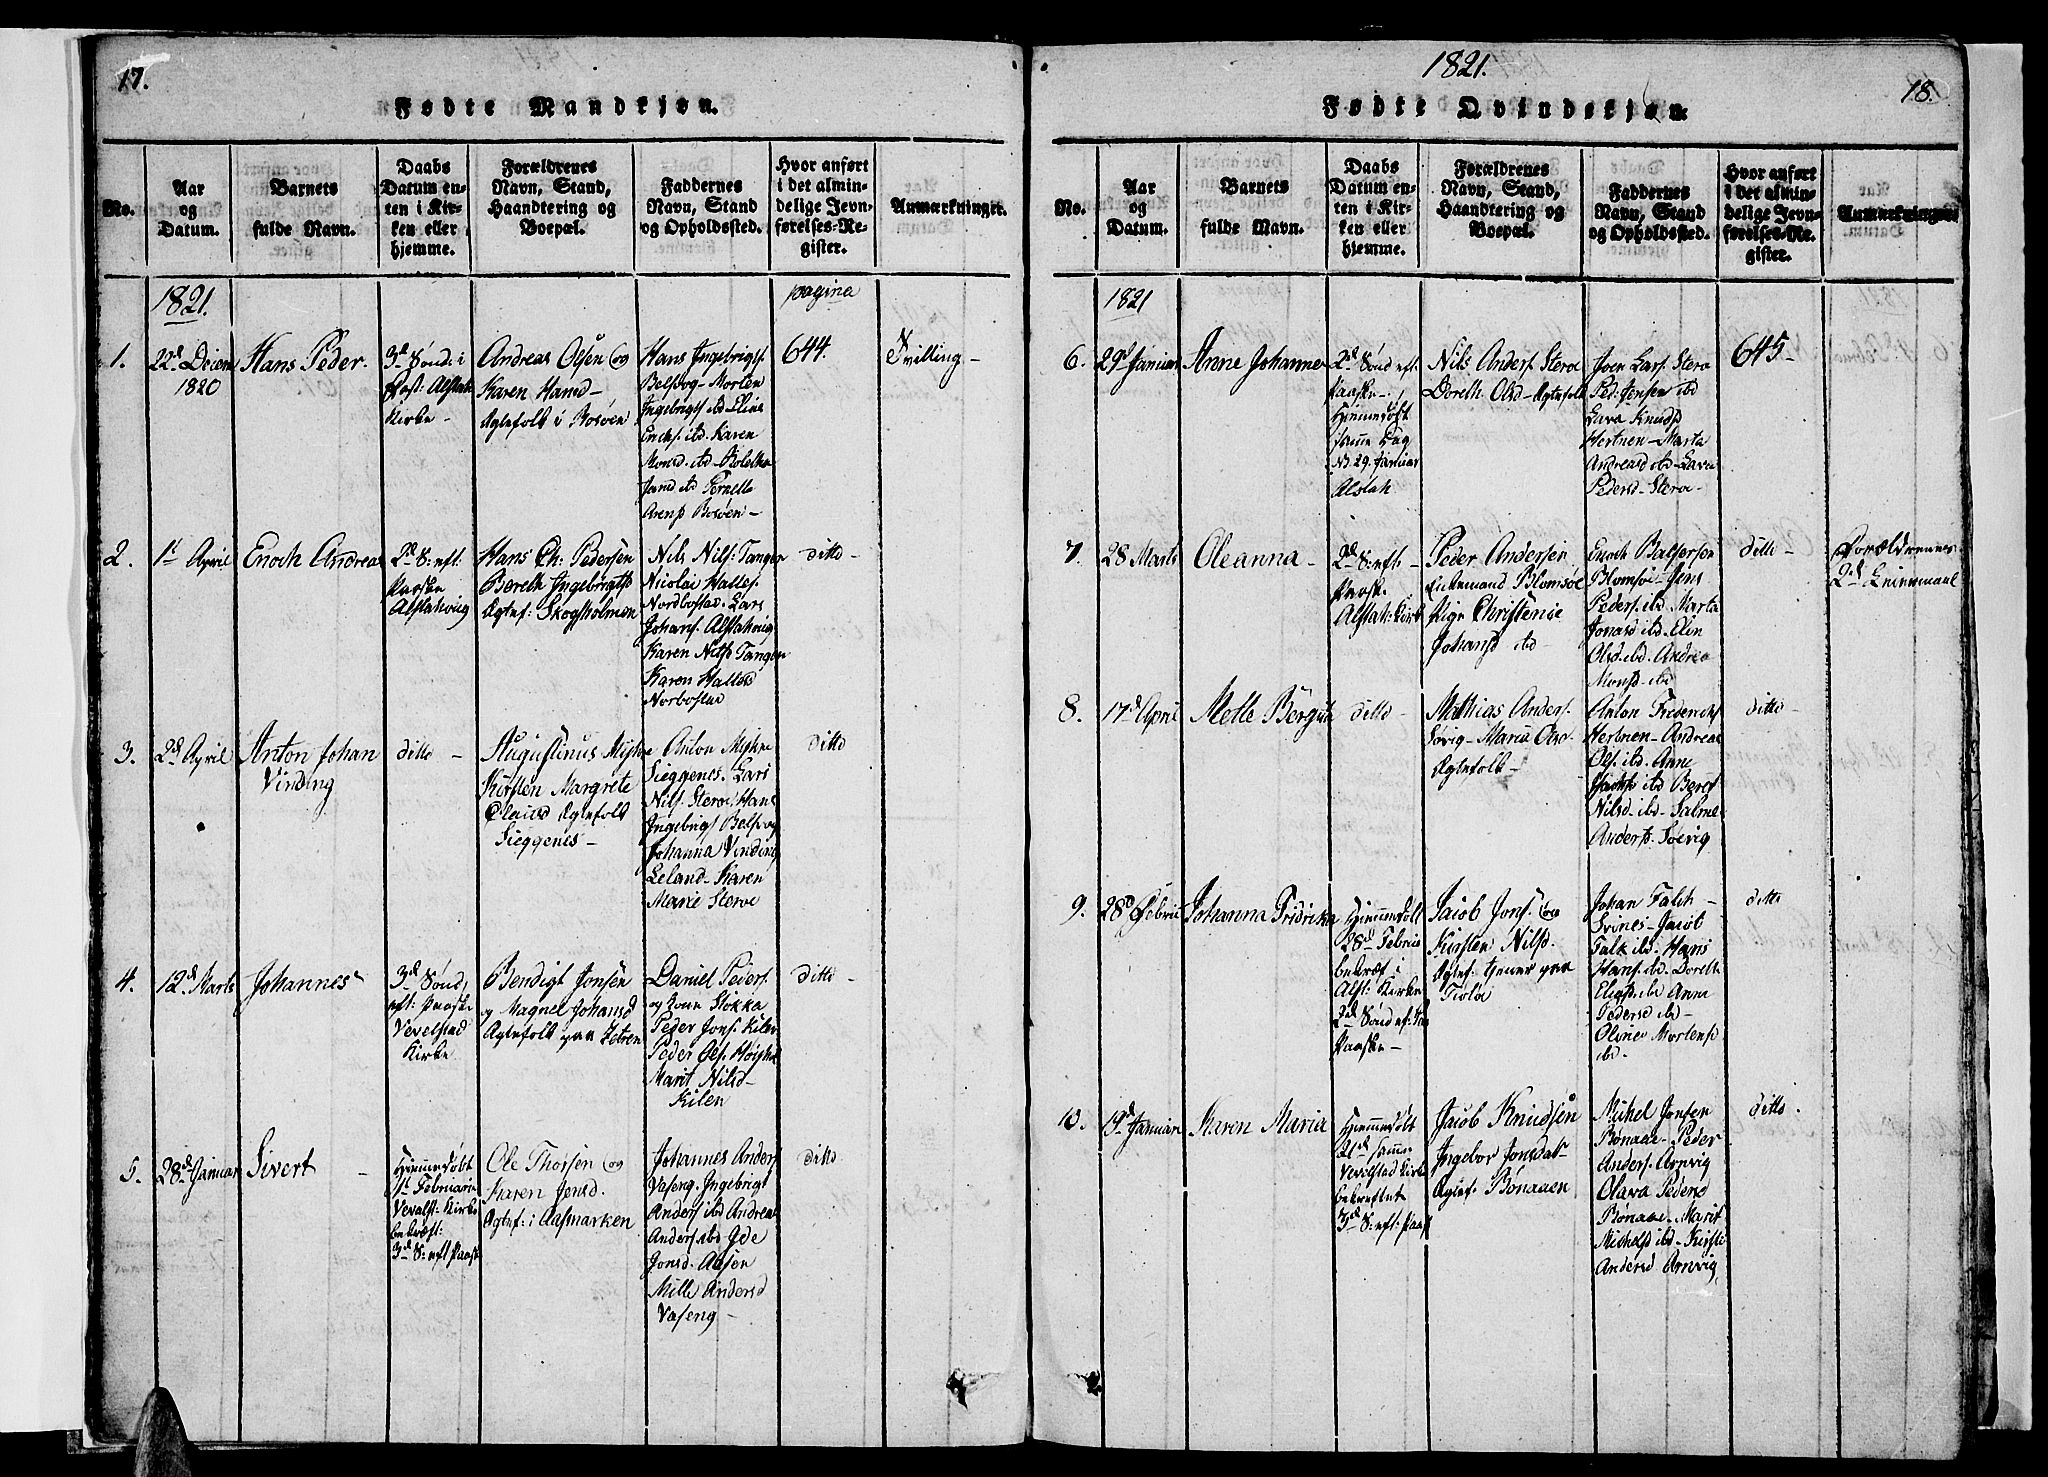 17.
Fødte Mandkjøn.
No.
Aar
og
Datum.
Barnets
fulde Navn.
Daabs
Datum en-
ten i Kir-
ken eller
hjemme.
Forældrenes
Navn, Stand,
Haandtering og
Boepæl.
Faddernes
Navn, Stand
og Opholdssted.
Hvor anført
i det almin-
delige Jevn-
førelses-Re-
gister.
Anmærkninger.
1821.
pagina
1.
22d Decem
1820
Hans Peder.
3d Sønd: i
Fast: Alstah.
Kirke -
Andreas Olsen og
Karen Hansd -
Ægtefolk i Rosøen
Hans Ingebrigts.
Belsvog - Morten
Ingebrigts ibd Eline
Enchs. ibd. Karen
Monsd. ibd - Bolethe
Jansd ibd Pernelle
Arents Rosøen -
644.
Tvilling -
2.
1t April
Enoch Andreas
2d S: eft:
Paaske
Alstahoug
Hans Ch: Pedersen
Bereth Ingebrigtsd
Ægtef: Skogsholmen
Nils Nils: Tangen
Nicolai Halles:
Nordbostad. Lars
Johans. Alstahoug
Karen Nilsd Tangen
Karen Hallesd
Norbostad
ditto -
3.
2d April
Anton Johan
Vinding
ditto -
Augustinus Myhre
Kirsten Margrete
Clausd Ægtefolk
Sieggenes -
Anton Myhre
Sieggenes. Lars
Nils. Steroe, Hans
Ingebrigts Belsvog
Johanna Vinding
Leland - Karen
Marie Steroe
ditto
4.
12d Marts
Johannes
3d Sønd,
eft: Paaske
Vevelstad
Kirke
Bendigt Jonsen
og Magnel Johansd
Ægtefolk paa
Daniel Peders.
og Kone Stokka
Peder Jons. Kilen
Peder Ols.
Marit Nilsd -
Kilen
ditto -
5.
28d Januar
Sivert -
Hiemmedøbt
1t Februarii
Vevelst: Kirke
bekræft:
3d S: eft Paaske
Ole Thorsen og
Karen Jensd.
Ægtef: i Aasmarken
Johannes Anders
Vaseng. Ingebrigt
Anders ibd Andreas
Anders. ibd Ide
Jonsd. Aasen
Mille Andersd
Vaseng -
ditto
1821.
18.
Fødte Qvindekjøn.
No.
Aar
og
Datum.
Barnets
fulde Navn.
Daabs
Datum en-
ten i Kir-
ken eller
hjemme.
Forældrenes
Navn, Stand,
Haandtering og
Boepæl.
Faddernes
Navn, Stand
og Opholdssted.
Hvor anført
i det almin-
delige Jevn-
førelses-Re-
gister.
Anmærkninger.
1821
6.
29d Januar
Anne Johanne
2d Sønd eft:
Paaske -
Hiemmedøbt
samme Dag
N: 29. Januar
Alstah
Nils Anders. Steroe
Doreth Olsd - Ægtefolk
Joen Lars. Steroe
Ped. Jensen ibd
Lava Knudsd
Hertnen - Marta
Andreasd ibd - Lava
Pedersd - Steroe -
645 -
7.
28 Marts
Oleanna -
2d S: eft: -
Paask.
Alstah: Kirke
Peder Andersen
Blomsøe
Pige Christense
Johansd ibd -
Enoch Baltsersen
Blomsøe - Jens
Peders. ibd Marta
Jonasd ibd. Elin
Olsd. ibd. Andrea
Monsd. ibd
ditto -
Forældrenes
2d Leiermaal
8.
17d April
Mette Bergitte
ditto -
Mathias Anders.
Søvig - Maria Olsd -
Ægtefolk -
Anton Frederichs
Hertnen - Andreas
Ols. ibd. Anne
ibd Beret
Nilsd ibd - Salme
Andersd. Søevig
ditto -
9.
28d Febru
Johanna Fridrika
Hiemmedøbt
28d Februa
bekræf i
Alst: Kirke
2d Sønd ef:
Paaske -
Jacob Jons. og
Kirsten Nilsd.
Ægtef: tjener paa
Tiøtø
Johan Falch -
Svines - Jacob
Falk ibd. Hans
Hans. ibd. Doreth
ibd Anne
Pedersd ibd -
Oline Mortensd
ibd -
ditto
10.
19d Januar
Karen Maria
Hiemmedøbt
21d samme
Vevelstad Kirke
bekreftet
3d S: eft: Paask
Jacob Knudsen
Ingebor Jonsdat -
Ægtef. Bønaaen
Michel Jonsen
Bønaae - Peder
Anders. Arnvig
Olava Pedersd
Bønaae - Marit
Michelsd ibd - Kirsti
Andersd Arnvig
ditto.